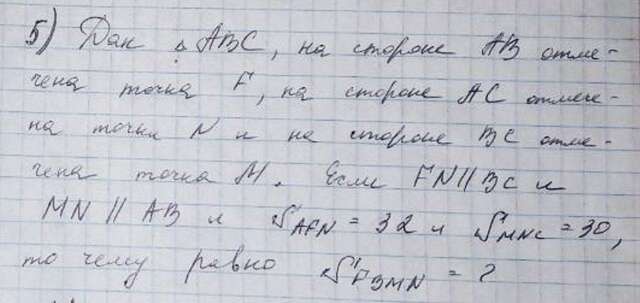 5) Дан △ ABC, на стороне AB отме-
чена точка F, на стороне AC отмече-
на точка N и на стороне BC отме-
чена точка M. Если FN || BC и
MN || AB и S AFN = 32 и S MNC = 30,
то чему равно S FBMN = ?